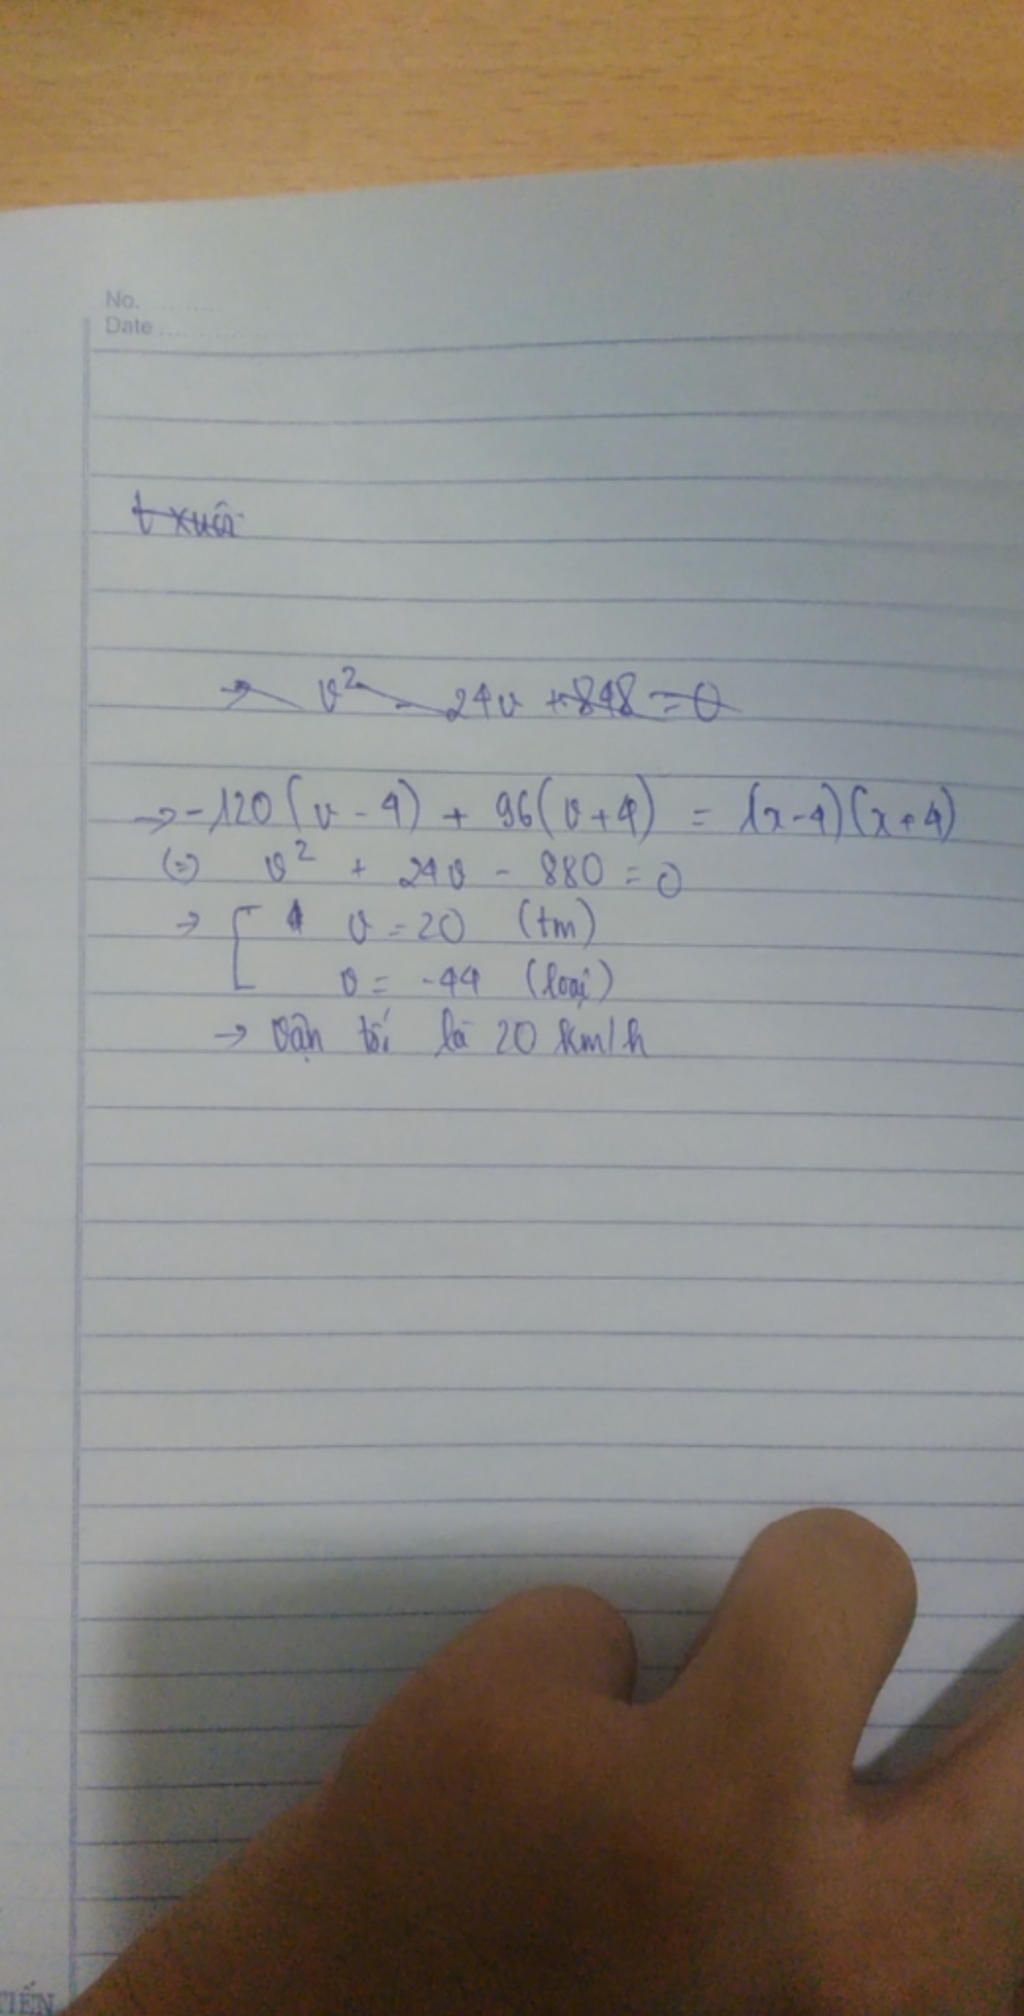 No. ..........
Date ..................
t xuôi
→ v² - 24v + 848 = 0
→ -120(v - 4) + 96(v + 4) = (x-4)(x+4)
(=) v² + 24v - 880 = 0
→ [ v = 20 (tm)
v = -44 (loại)
→ vận tốc là 20 km/h
TIẾN